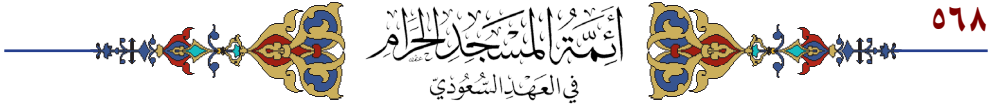 ٥٦٨
أَئِمَّةُ المَسْجِدِ الحَرَامِ
في العَهْدِ السُّعُودِيّ